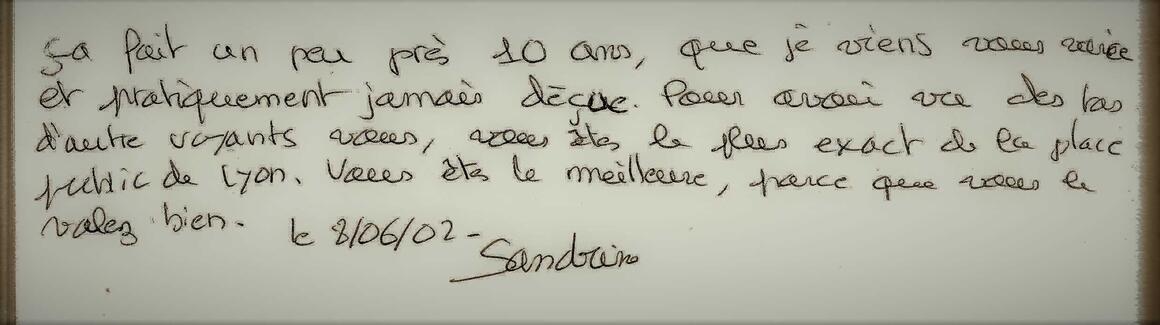 ça fait un peu près 10 ans, que je viens vous voire
et pratiquement jamais déçue. Pour avoir vu des tas
d'autre voyants vous, vous êtes le plus exact de la place
public de Lyon. Vous êtes le meilleure, parce que vous le
valez bien.
le 8/06/02-
Sandrine